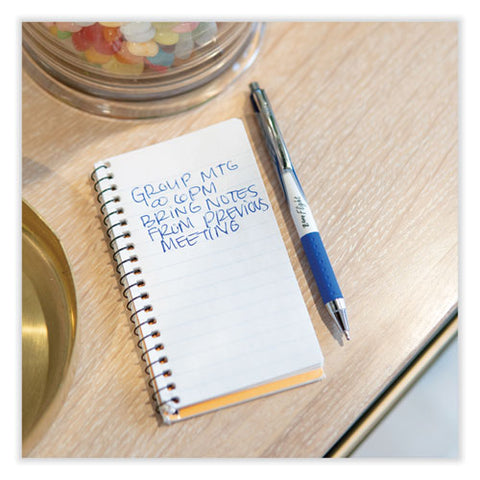 GROUP MTG
@ 6PM
BRING NOTES
FROM PREVIOUS
MEETING
Flight